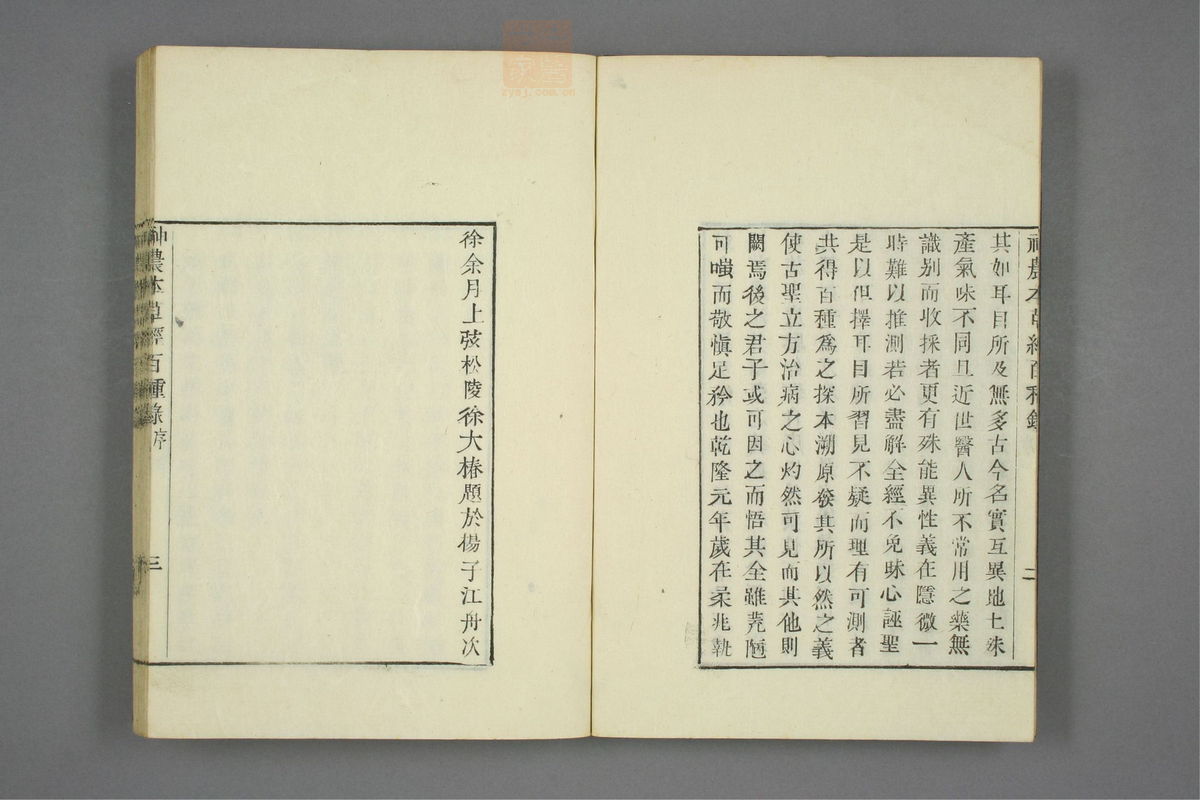 神農本草經百種錄
二
其如耳目所及無多古今名實互異地土殊
產氣味不同且近世醫人所不常用之藥無
識别而收採者更有殊能異性義在隱微一
時難以推測若必盡解全經不免昧心誣聖
是以但擇耳目所習見不疑而理有可測者
共得百種爲之探本溯原發其所以然之義
使古聖立方治病之心灼然可見而其他則
闕焉後之君子或可因之而悟其全雖荒陋
可嗤而敬慎足矜也乾隆元年歲在柔兆執
徐余月上弦松陵徐大椿題於楊子江舟次
神農本草經百種錄 序
三
zysj.com.cn